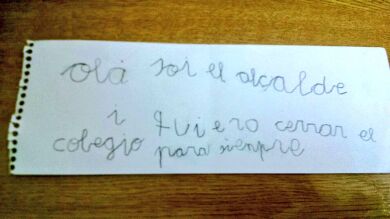 olá soi el alçalde
i quiero cerrar el
colegio para sienpre